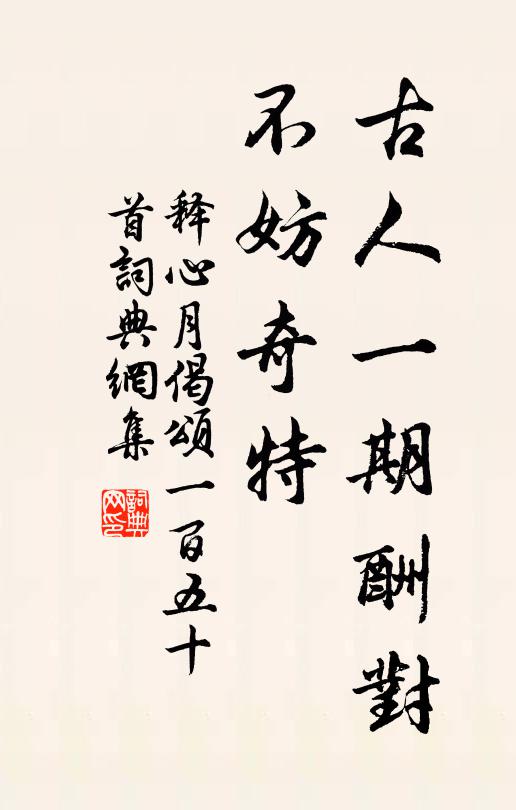 古人一期酬對
不妨奇特
释心月偈頌一百五十
首詞典網集
詞典网印